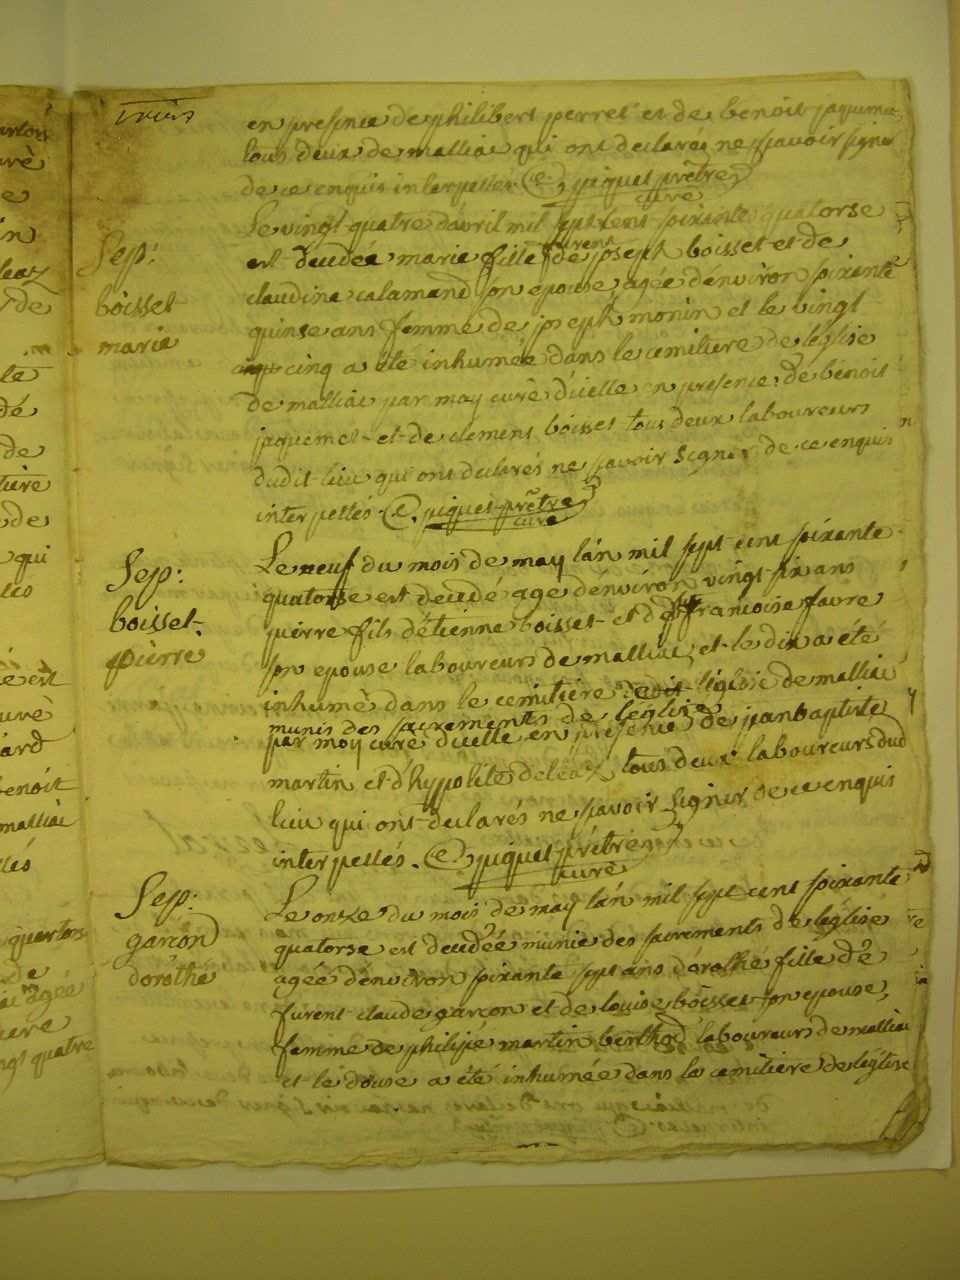 trois
en presence de philibert perret et de benoit jaquemet
tous deux de malliac qui ont declarés ne sçavoir signer
de ce enquis interpellés. piquet prêtre
curé
Sep:
boisset
marie
Le vingt quatre d'avril mil sept cent soixante quatorse
est decedée marie fille de furent joseph boisset et de
claudine calamand son epouse agée d'environ soixante
quinse ans femme de joseph monin et le vingt
cinq a été inhumée dans le cemitiere de l'eglise
de malliac par moy curé d'icelle en presence de benoit
jaquemet et de clement boisset tous deux laboureurs
dudit lieu qui ont declarés ne sçavoir signer de ce enquis
interpellés. piquet prêtre
curé
Sep:
boisset
pierre
Le neuf du mois de may l'an mil sept cent soixante
quatorse est decedé age d'environ vingt six ans
pierre fils d'etienne boisset et de francoise favre
son epouse laboureurs de malliac, et le dix a été
inhumé dans le cemitiere de l'eglise de malliac
munis des sacrements de l'eglise
par moy curé d'icelle en presence de jeanbaptiste
martin et d'hypolite deleaz tous deux laboureurs dud
lieu qui ont declarés ne sçavoir signer de ce enquis
interpellés. piquet prêtre
curé
Sep:
garçon
dorothé
Le onze du mois de may l'an mil sept cent soixante
quatorse est decedée munie des sacrements de l'eglise
agée d'environ soixante sept ans dorothé fille de
furent claude garçon et de louise boisset son epouse,
femme de philipe martin berthod laboureurs de malliac
et le douse a été inhumée dans le cemitiere de l'eglise